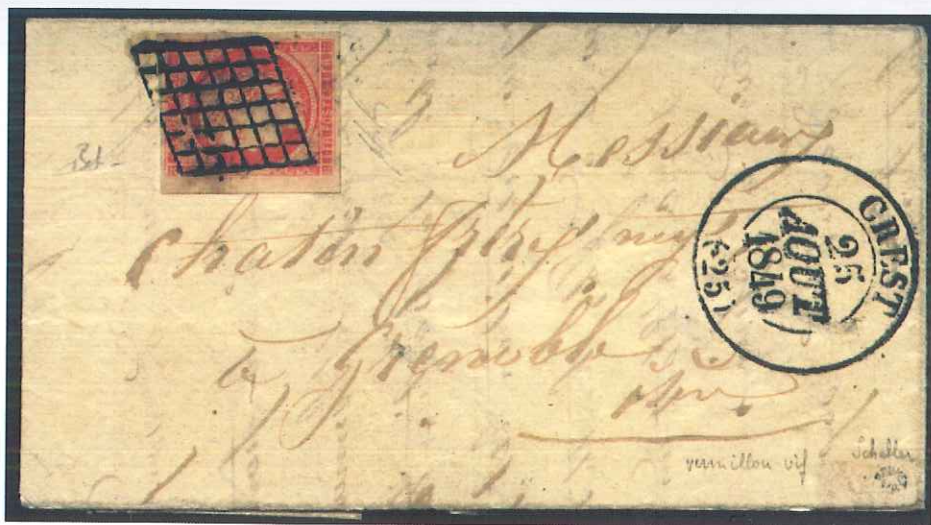 Messieurs
Chatin frères
à Grenoble
CREST
25
AOUT
1849
(25)
vermillon vif
Scheller